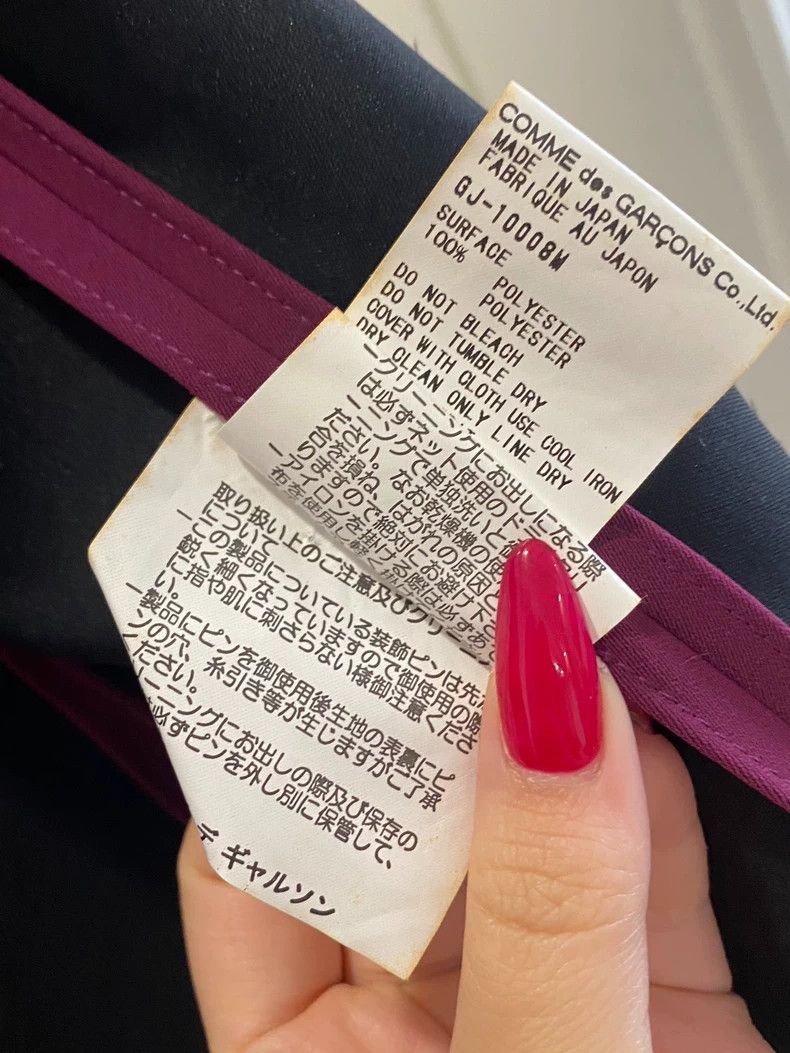 COMME des GARÇONS Co.,Ltd.
MADE IN JAPAN
FABRIQUE AU JAPON
GJ-10008M
SURFACE POLYESTER
100% POLYESTER
DO NOT BLEACH
DO NOT TUMBLE DRY
COVER WITH CLOTH USE COOL IRON
DRY CLEAN ONLY LINE DRY
ークリーニングにお出しになる際
は必ずネット使用のドライクリ
ーニングで単独洗いと
ださい。なお乾燥機の使
合を損ね、はがれの原因と
ますので絶対にお避け下さ
ーアイロンを掛ける際は必ずあて
布を使用し
取り扱い上のご注意及びクリーニン
について
ーこの製品についている装飾ピンは先が
鋭く細くなっていますので御使用の際
に指や肌に刺さらない様御注意くださ
い。
ー製品にピンを御使用後生地の表裏にピ
ンの穴、糸引き等が生じますがご了承
ください。
リーニングにお出しの際及び保存の
必ずピンを外し別に保管して、
デ ギャルソン